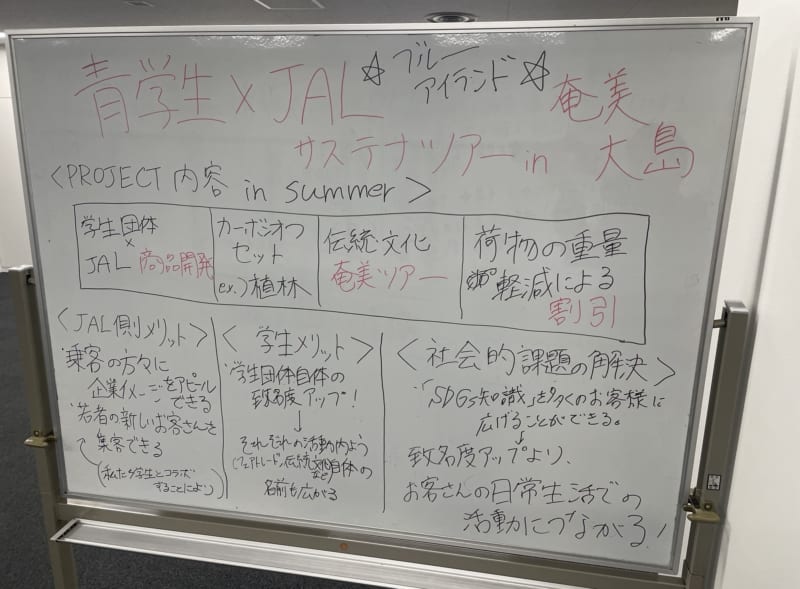 青学生×JAL ☆ブルーアイランド☆ 奄美大島
サステナツアー in
<PROJECT内容 in summer>
学生団体
×
JAL 商品開発
カーボンオフ
セット
ex.)植林
伝統文化
奄美ツアー
荷物の重量
軽減による
割引
<JAL側メリット>
・乗客の方々に
企業イメージをアピール
できる
・若者の新しいお客さんを
集客できる
(私たち学生とコラボ
することにより)
<学生メリット>
・学生団体自体の
致名度アップ!
↓
それぞれの活動内よう
(フェアトレード、伝統文化など)自体の
名前も広がる
<社会的課題の解決>
・「SDGs知識」を多くのお客様に
広げることができる。
↓
致名度アップより、
お客さんの日常生活での
活動につながる!